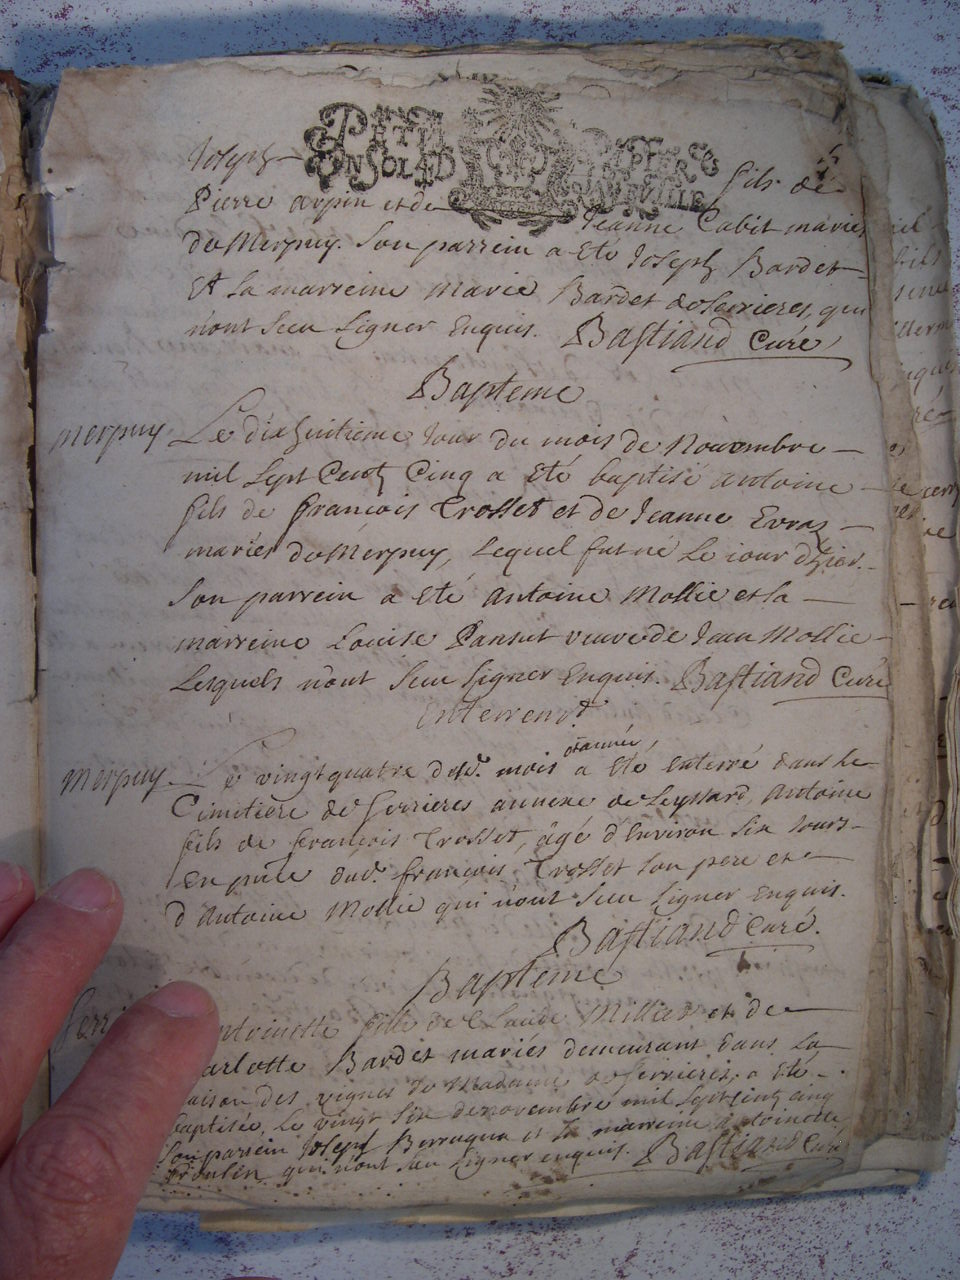 Joseph fils de
Pierre arpin et de Jeanne Cabit mariés
de Merpuy. Son parrein a eté Joseph Bardet
Et la marreine Marie Bardet de Serrieres, qui
n'ont sceu signer Enquis. Bastiand Curé
Bapteme
Merpuy Le dixhuitieme Jour du mois de Novembre
mil sept Cent Cinq a eté baptisé Antoine
fils de françois Trosset et de Jeanne Evraz
mariés de Merpuy, Lequel fut né Le iour d'hier.
Son parrein a eté Antoine Mollie et la
marreine Louise Pansut veuve de Jean Mollie
Lesquels n'ont sceu signer Enquis. Bastiand Curé
Enterremt
Merpuy Le vingt quatre desd. mois et année, a eté enterré dans le
Cimetiere de Serrieres annexe de Leyssard, Antoine
fils de françois Trosset, âgé d'Environ six jours
En pnce dud. françois Trosset son pere et
d'Antoine Mollie qui n'ont sceu signer Enquis.
Bastiand Curé.
Bapteme
Serri ntoinette fille de Claude Millier et de
arlotte Bardet mariés demeurant dans la
aison des vignes de Madame de Serrieres, a eté
baptisée, Le vingt six de novembre mil sept cinq
Son parrein Joseph et la marreine Antoinette
qui n'ont sceu signer enquis. Bastiand Curé